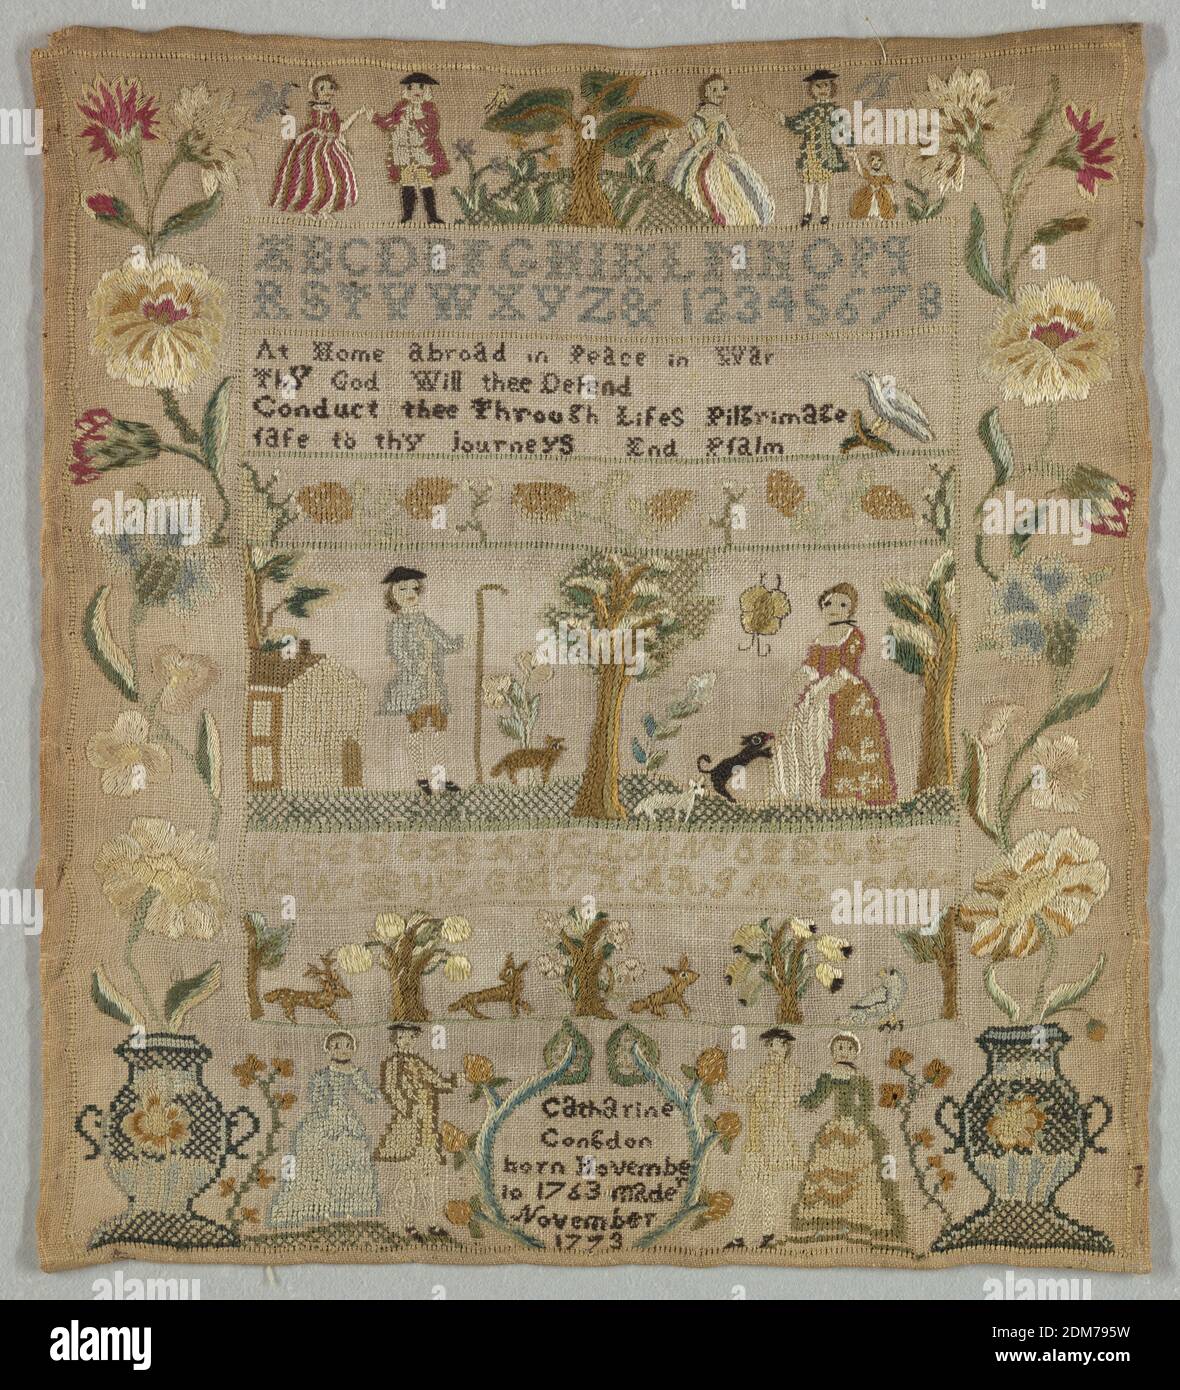 ABCDEFGHIKLMNOPQ
RSTVWXYZ& 12345678
At Home abroad in Peace in War
Thy God Will thee Defend
Conduct thee Through Lifes Pilgrimage
ſafe to thy journeys End Pſalm
Catharine
Congdon
born Novembe
r
10 1763 made
November
1773
alamy
2DM795W
www.alamy.com